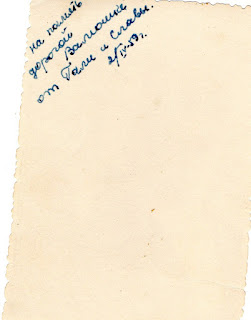 на память
дорогой Валюшке
от Гали и Славы.
2/IV-59г.